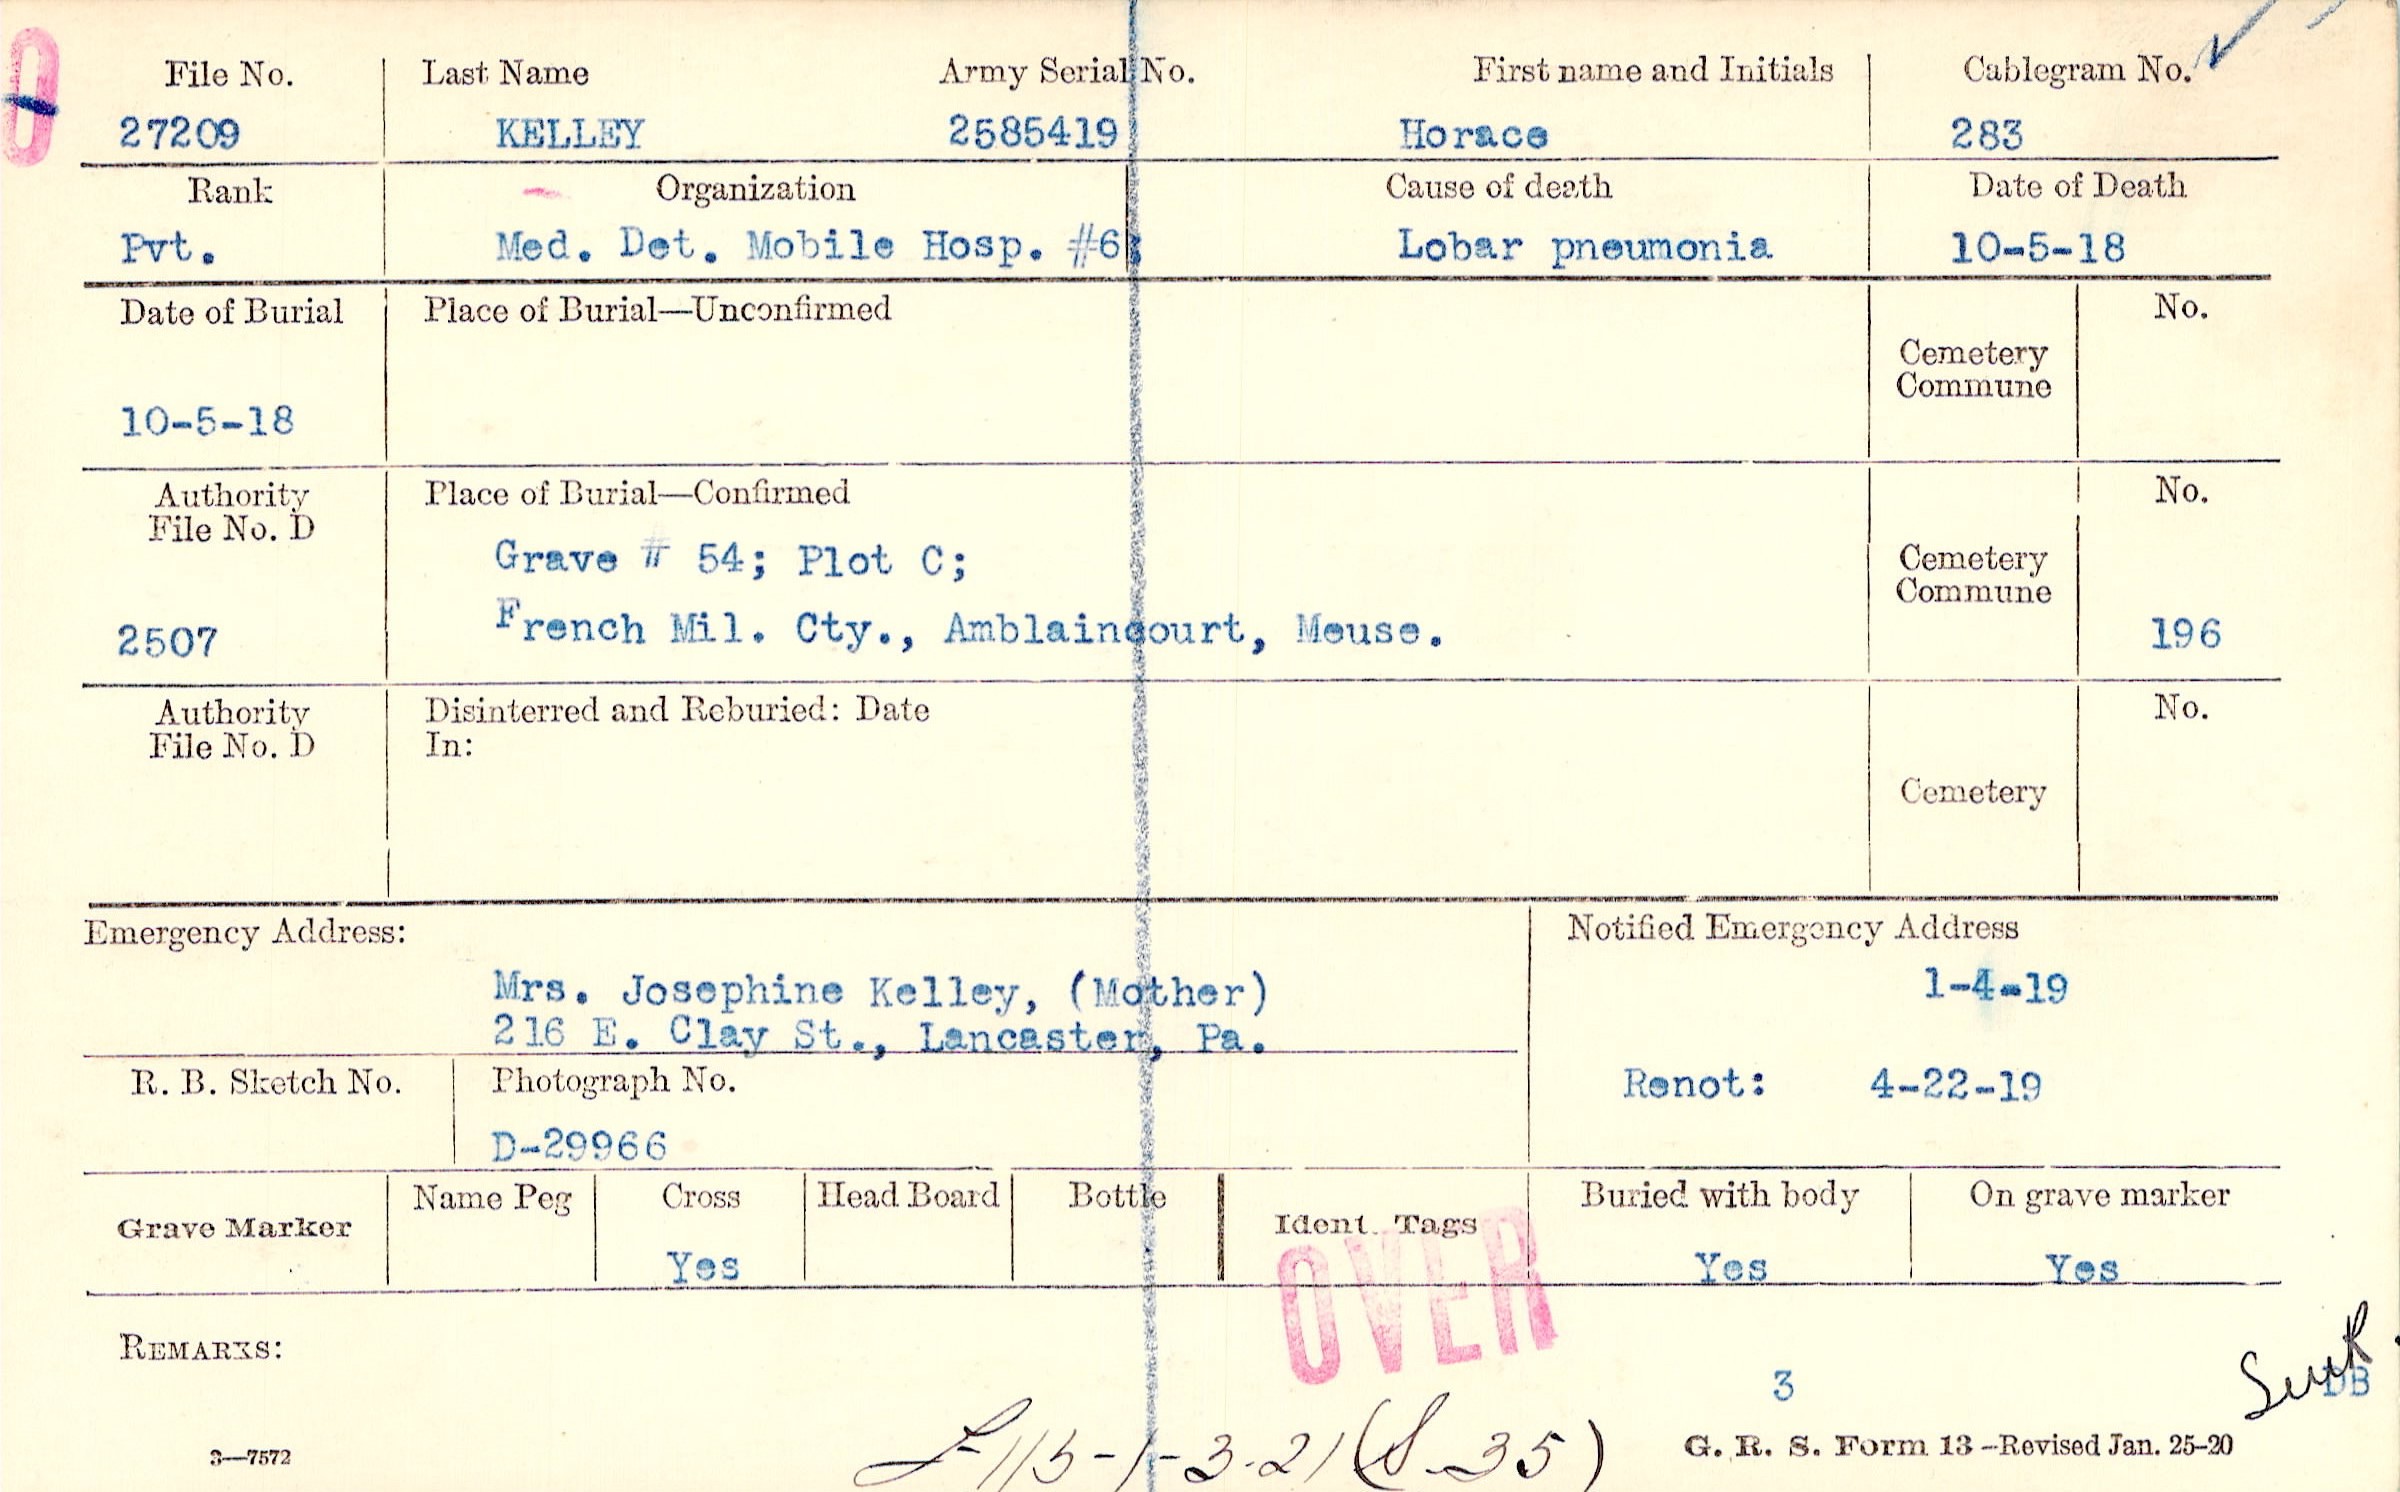 File No. Last Name Army Serial No. First name and Initials Cablegram No.
27209 KELLEY 2585419 Horace 283
Rank Organization Cause of death Date of Death
Pvt. Med. Det. Mobile Hosp. #6; Lobar pneumonia 10-5-18
Date of Burial Place of Burial—Unconfirmed No.
Cemetery
Commune
10-5-18
Authority Place of Burial—Confirmed No.
File No. D
Grave # 54; Plot C; Cemetery
Commune
2507 French Mil. Cty., Amblaincourt, Meuse. 196
Authority Disinterred and Reburied: Date No.
File No. D In:
Cemetery
Emergency Address: Notified Emergency Address
Mrs. Josephine Kelley, (Mother) 1-4-19
216 E. Clay St., Lancaster, Pa.
R. B. Sketch No. Photograph No. Renot: 4-22-19
D-29966
Grave Marker Name Peg Cross Head Board Bottle Ident. Tags Buried with body On grave marker
Yes Yes Yes
OVER
REMARKS:
3 DB
3—7572 113-1-3-21 (S-35) G. R. S. Form 13—Revised Jan. 25-20